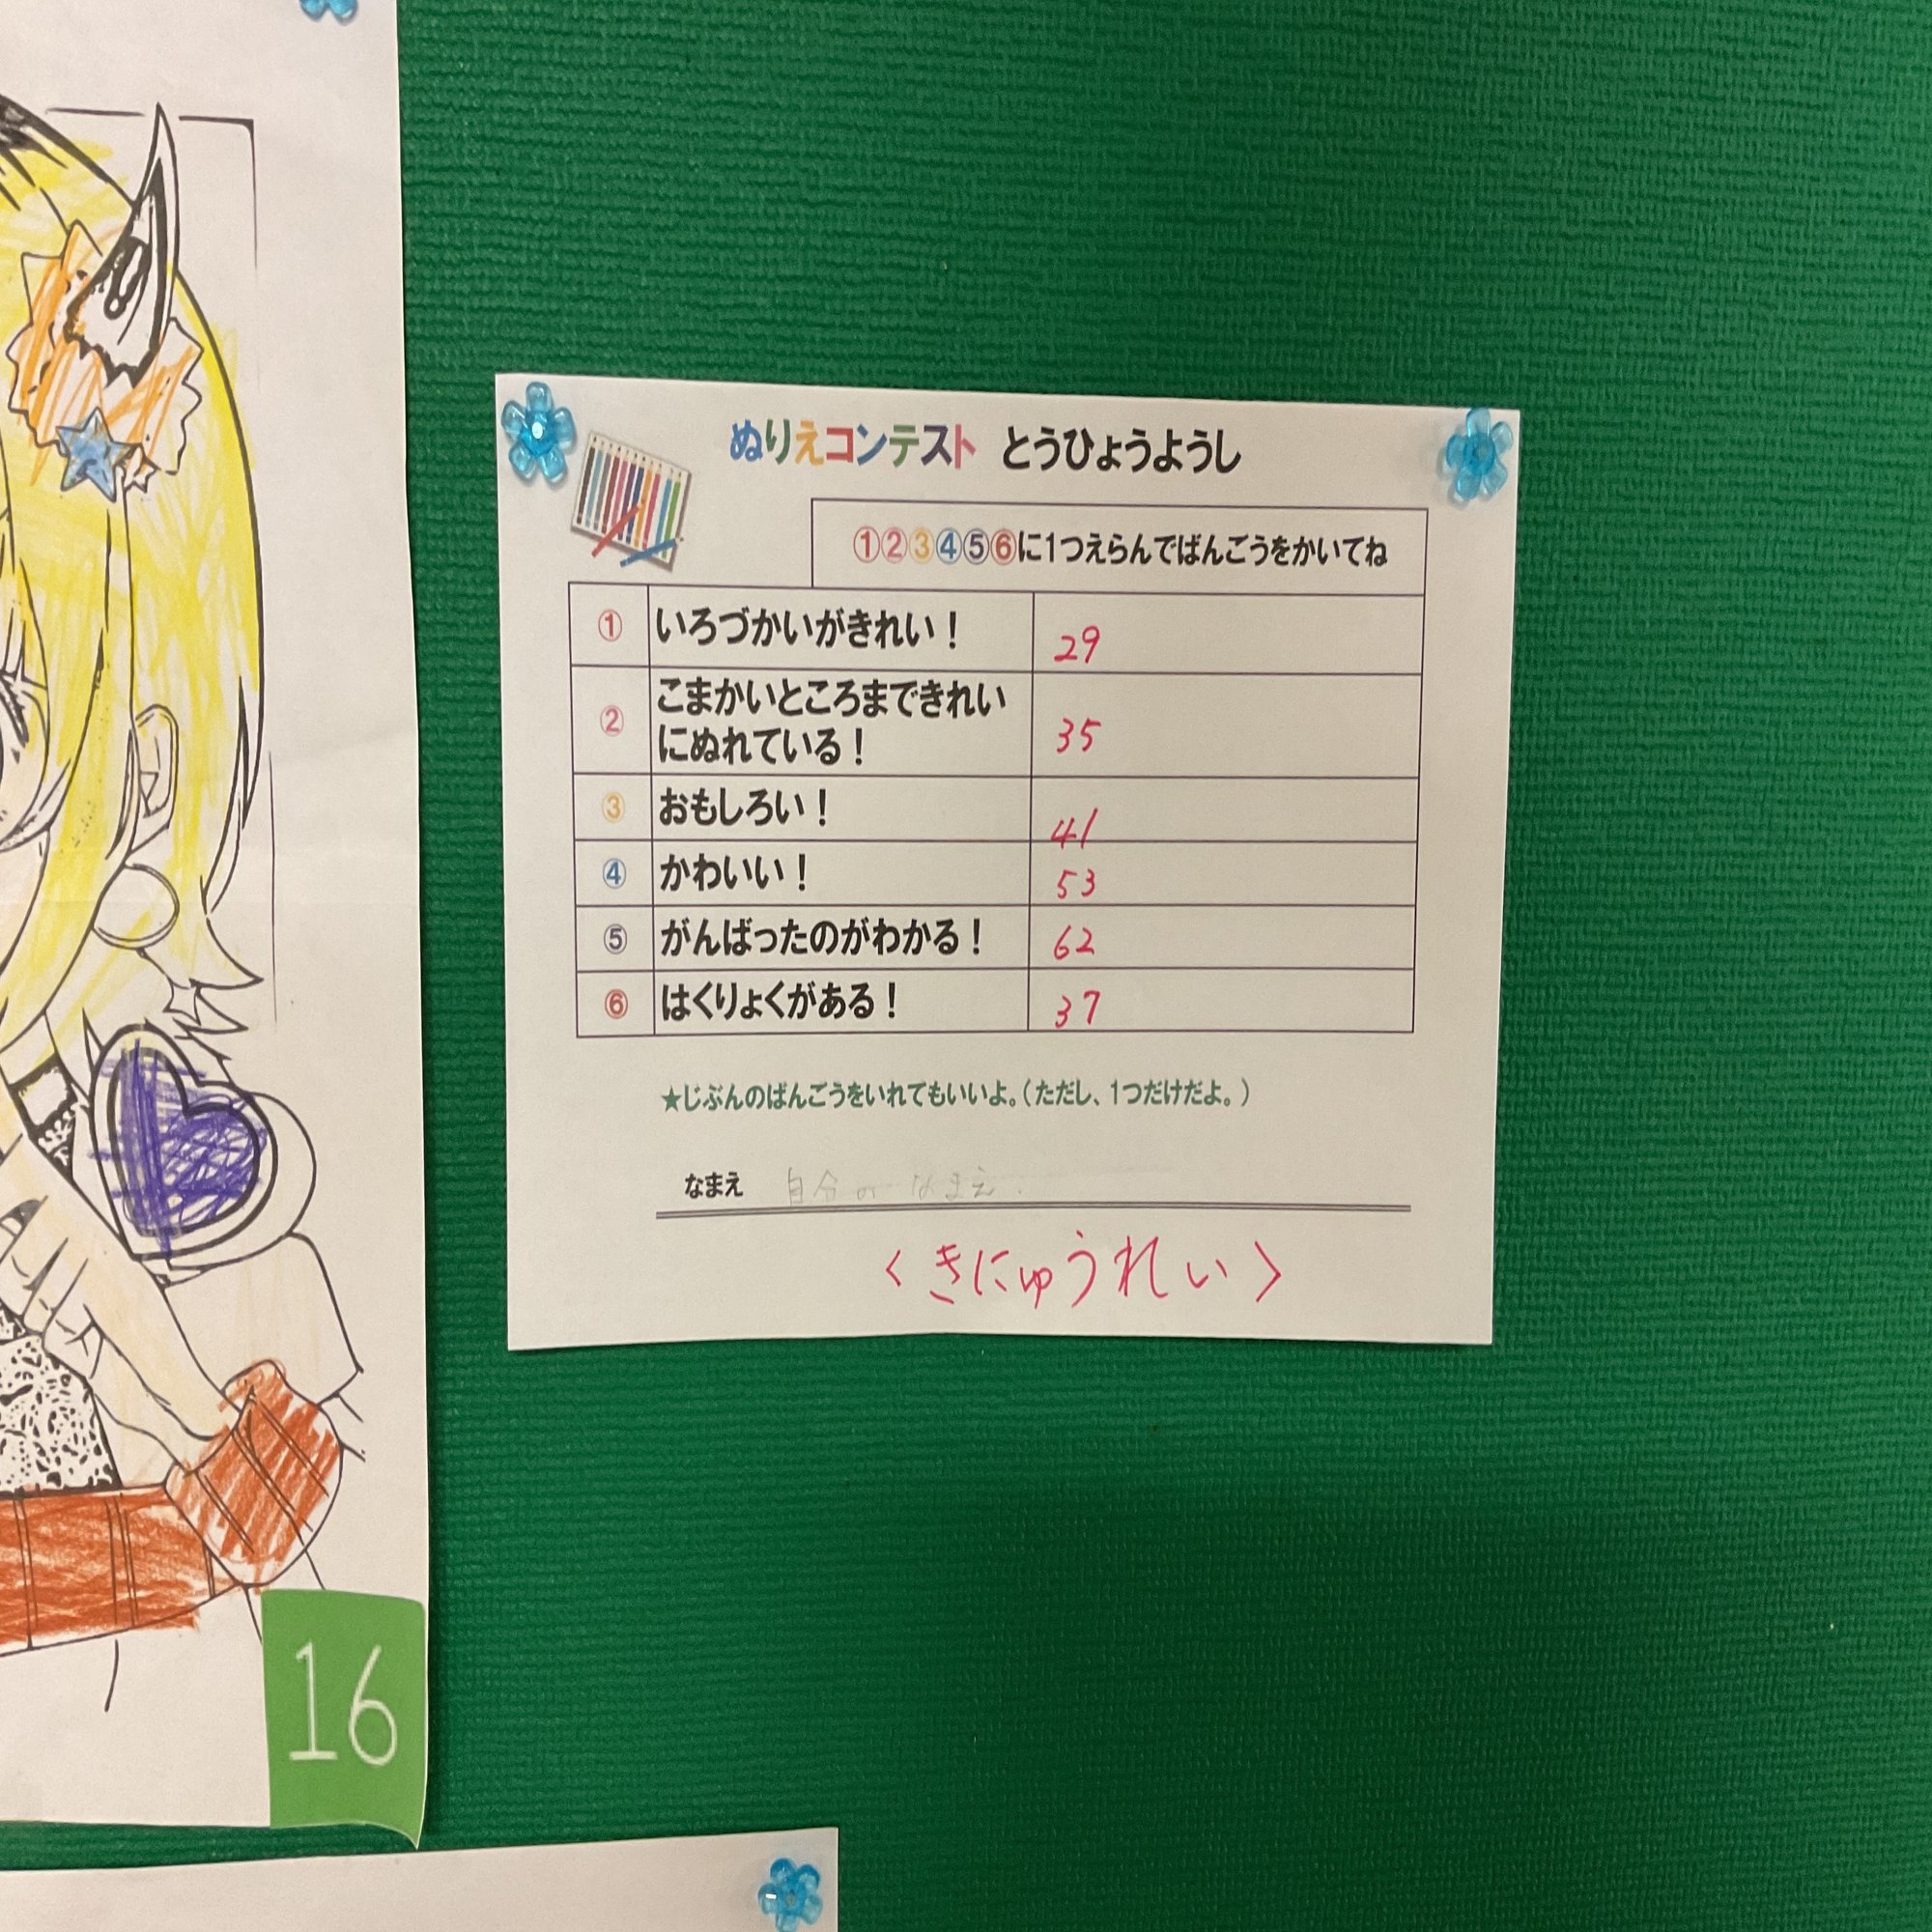 ぬりえコンテスト とうひょうようし
①②③④⑤⑥に1つえらんでばんごうをかいてね
① いろづかいがきれい! 29
② こまかいところまできれい
にぬれている! 35
③ おもしろい! 41
④ かわいい! 53
⑤ がんばったのがわかる! 62
⑥ はくりょくがある! 37
★じぶんのばんごうをいれてもいいよ。(ただし、1つだけだよ。)
なまえ 自分の なまえ.
<きにゅうれい>
16